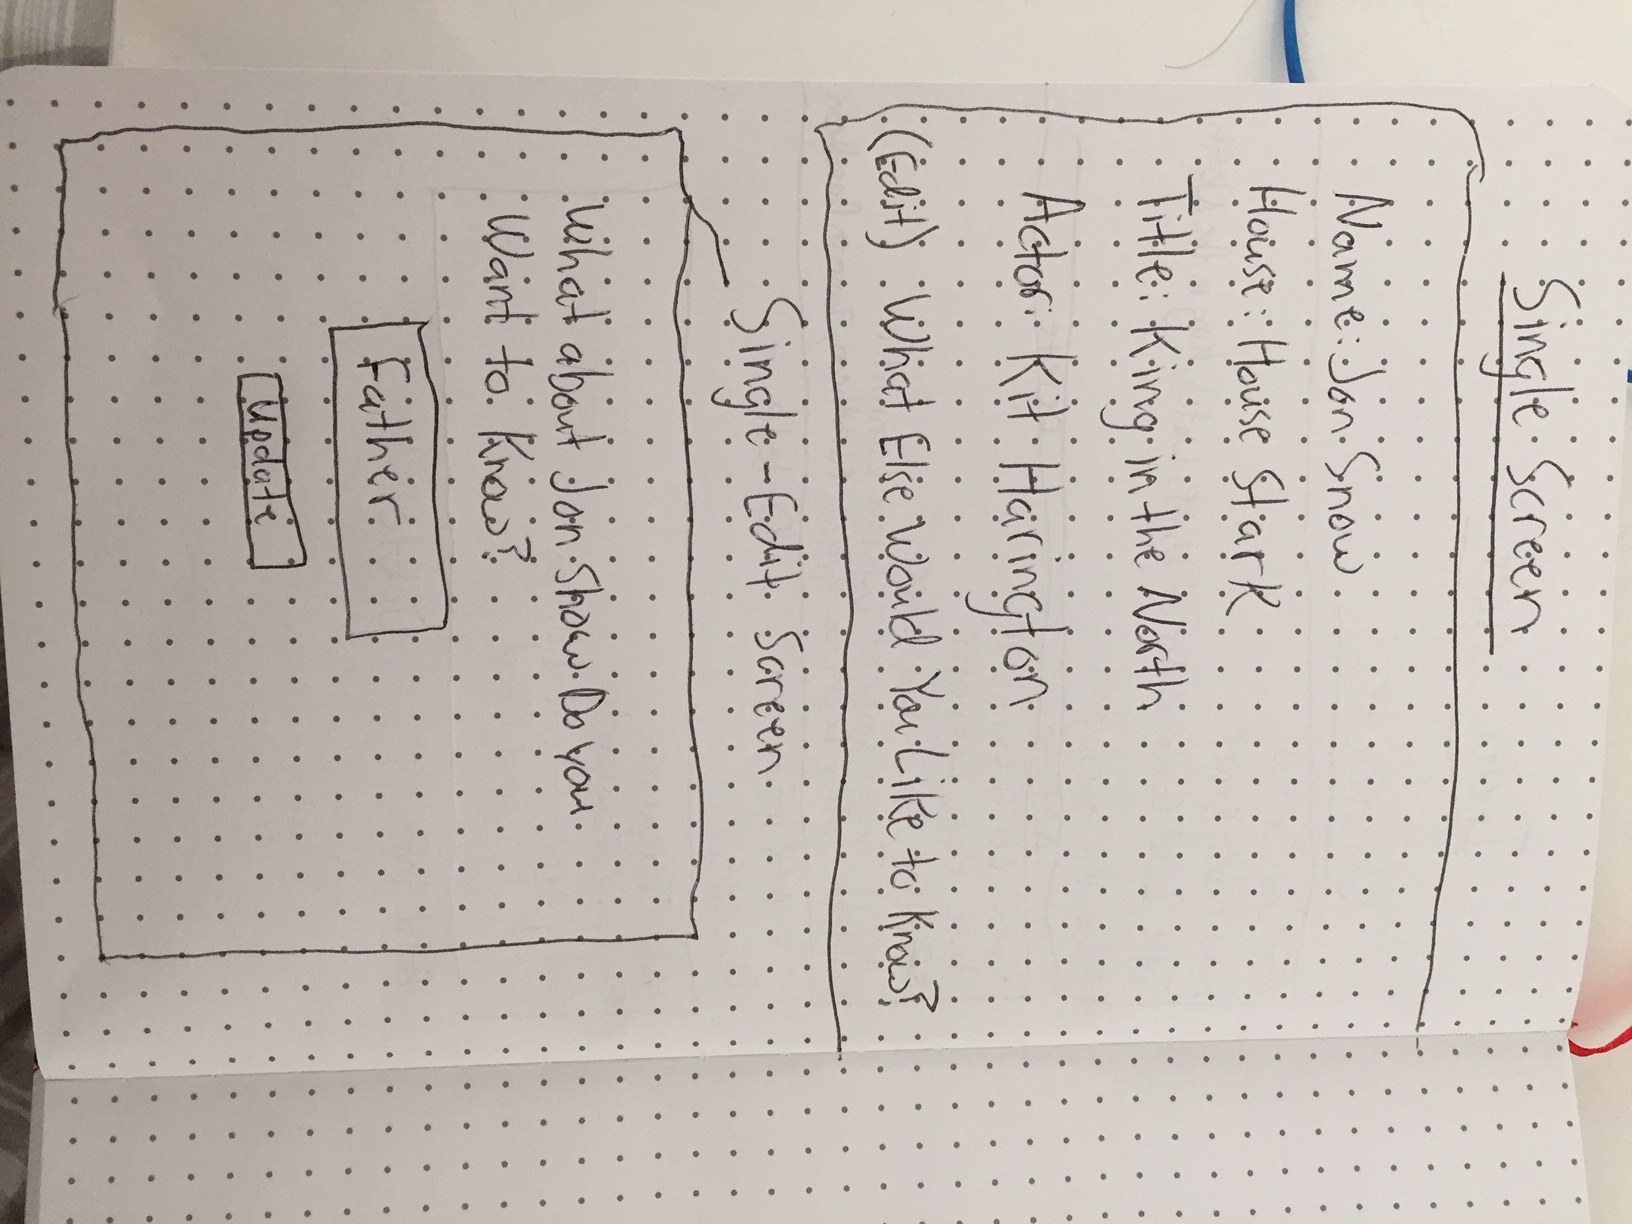 Single Screen
Name: Jon Snow
House: House Stark
Title: King in the North
Actor: Kit Harington
(Edit) What Else Would You Like to Know?
Single-Edit Screen
What about Jon Show Do you
Want to Know?
Father
Update